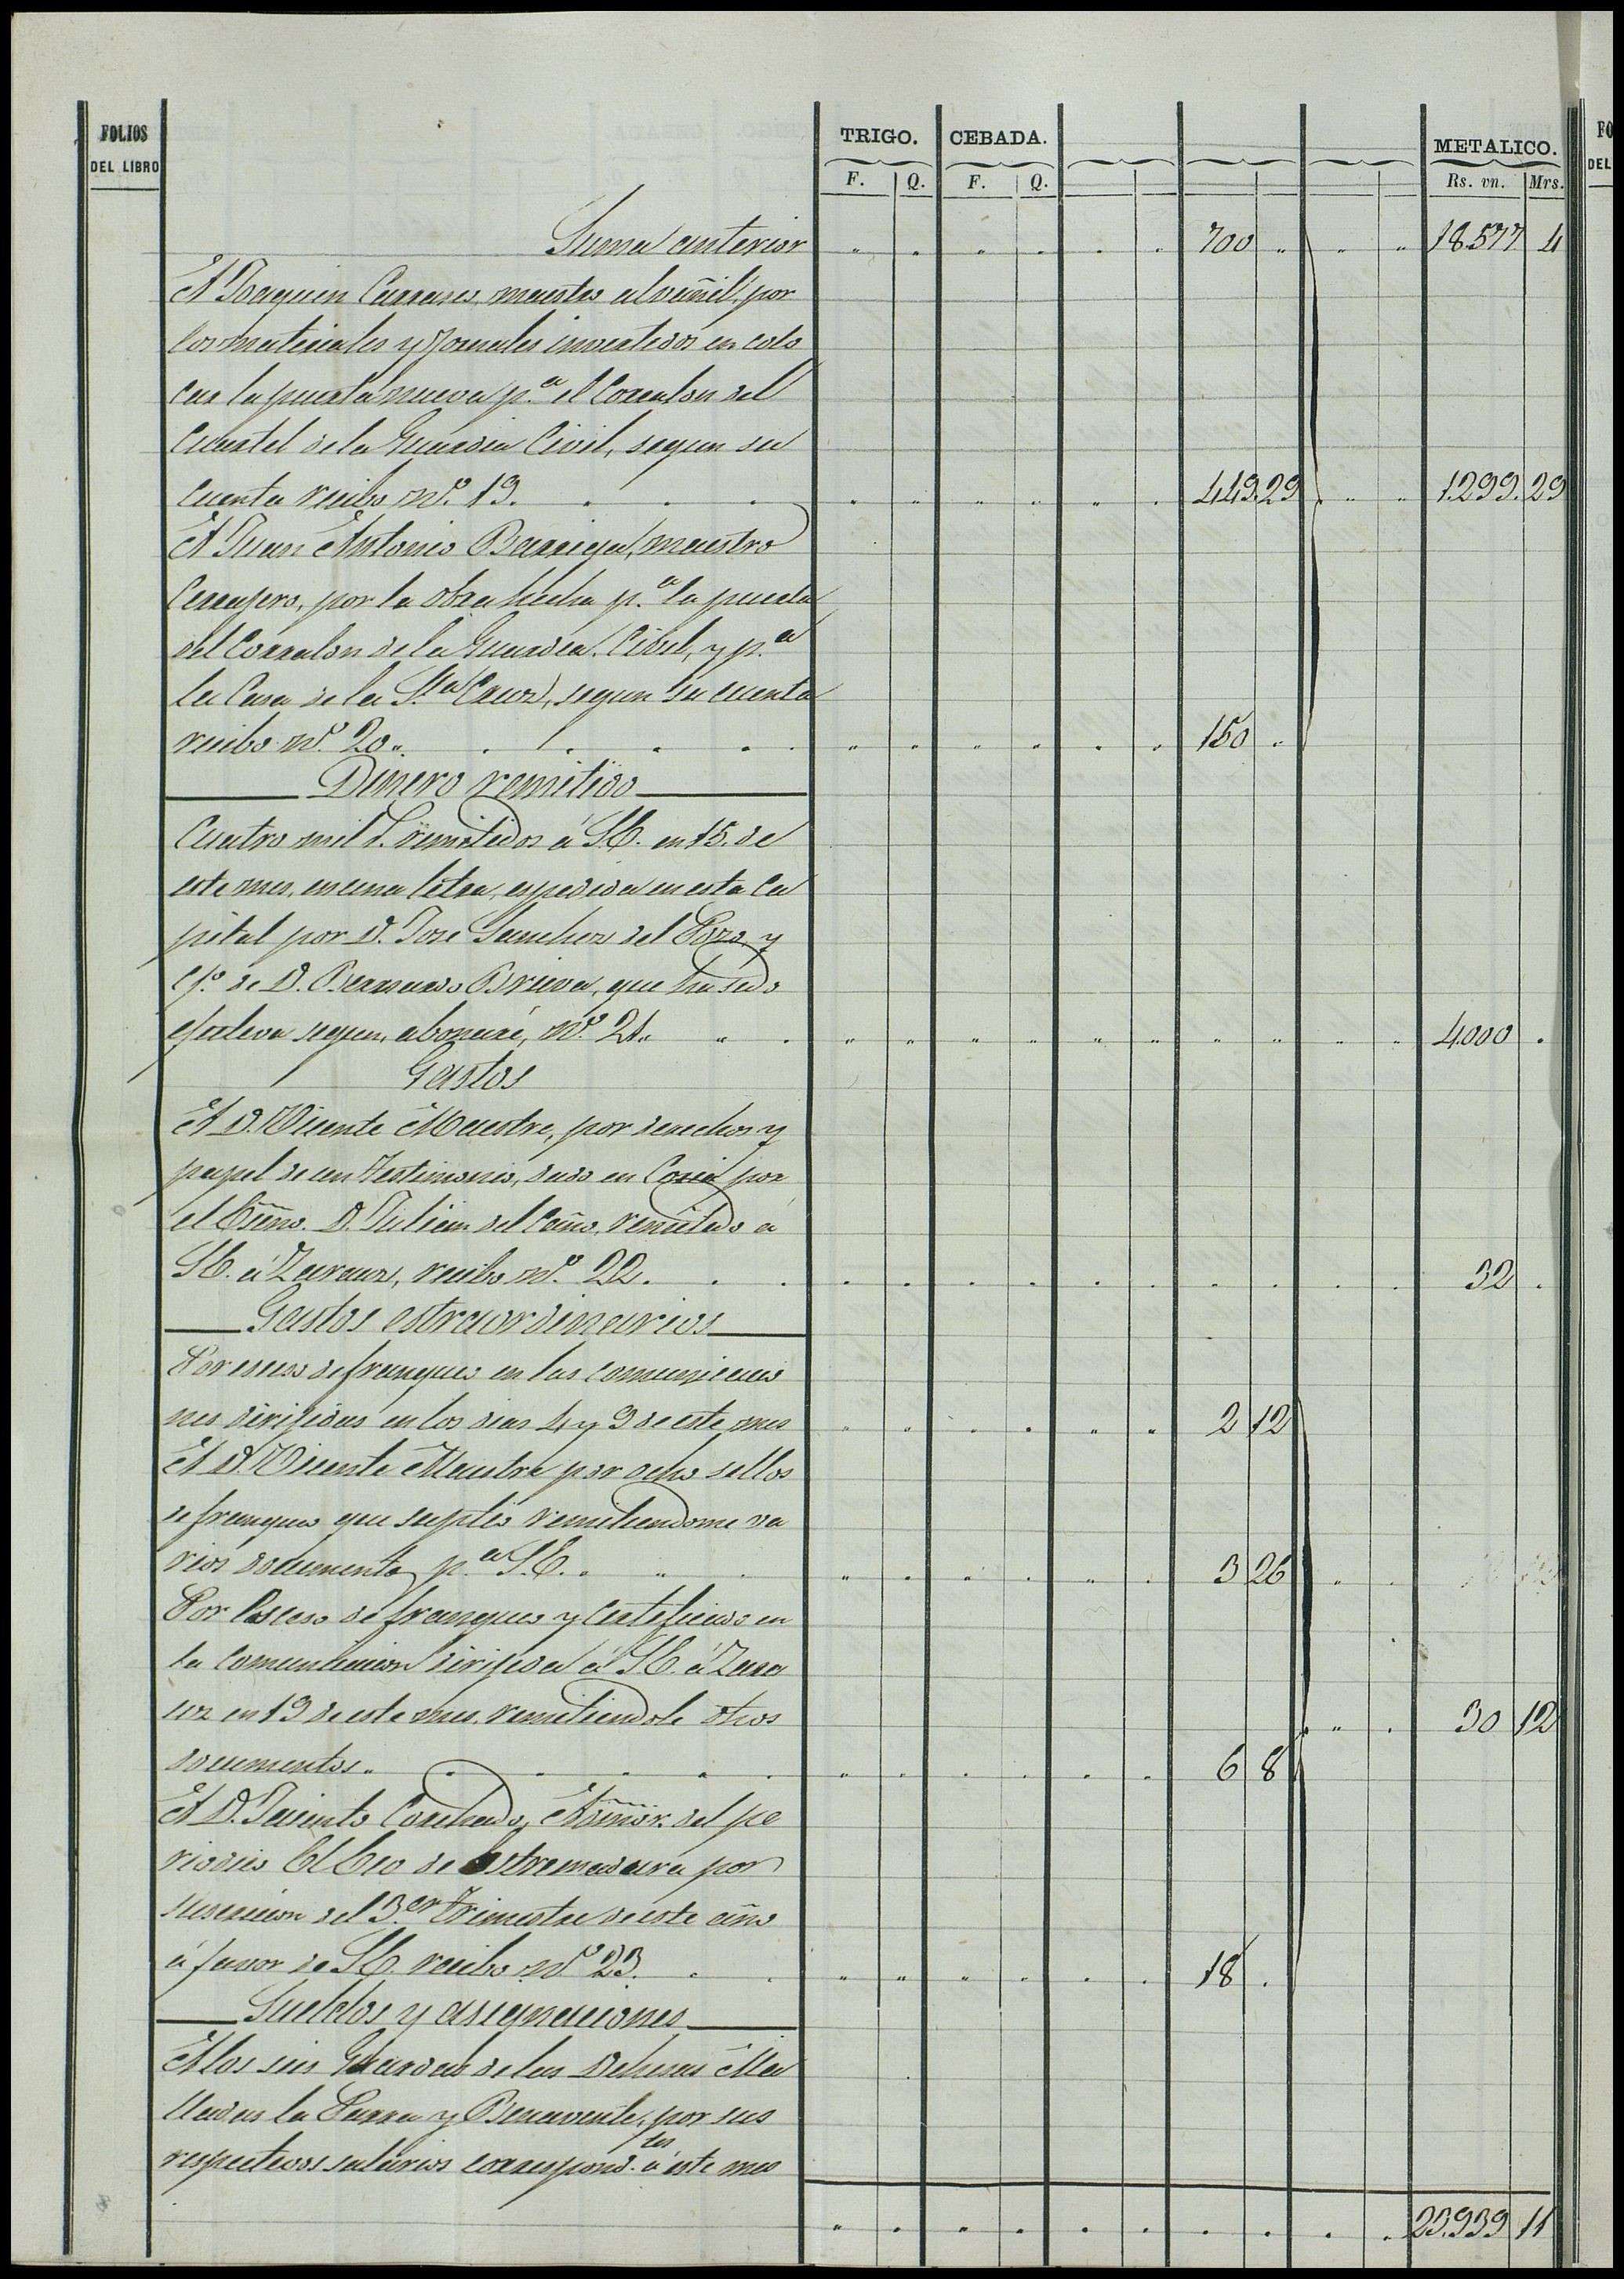 FOLIOS
DEL LIBRO
TRIGO. CEBADA. METALICO.
F. Q. F. Q. Rs. vn. Mrs.
Suma anterior 700 18.577 4
A Joaquin Carrasco, maestro alvañil, por
los materiales y jornales invertidos en colo
car la puerta nueva p.ª el Corralon del
Cuartel de la Guardia Civil, segun su
cuenta recibo n.º 19. 449.29 1.299.29
A Juan Antonio Barriga, maestro
Cerrajero, por la obra hecha p.ª la puerta
del Corralon de la Guardia Civil, y p.ª
la Casa de la S.ta Cruz, segun su cuenta
recibo n.º 20. 150
Dinero remitido
Cuatro mil r. remitidos á S.E. en 15. de
este mes, en una letra, espedida en esta Ca
pital por D. Jose Sanchez del Pozo y
c/º de D. Bernardo Brieva, que ha sido
efectiva segun abonaré, n.º 21. 4.000
Gastos
A D. Vicente Maestre, por derechos y
papel de un testimonio, dado en Coria por
el Esño. D. Julian del Caño, remitido á
S.E. á Zarauz, recibo n.º 22. 32
Gastos estraordinarios
Por esceso de franqueo en las comunicacio
nes dirijidas en los dias 4 y 9 de este mes 2 12
A D. Vicente Maestre por ocho sellos
de franqueo que suplió remitiendome va
rios documentos p.ª S.E. 3 26
Por Esceso de franqueo y Certificado en
la comunicacion dirijida á S.E. á Zara
uz en 19 de este mes, remitiendole otros 30 12
documentos. 6 8
A D. Jacinto Corchado, Admor. del pe
riodico El Eco de Estremadura por
suscricion del 3.er trimestre de este año
á favor de S.E. recibo n.º 23. 18
Sueldos y asignaciones
A los seis Guardas de las Dehesas Ma
lladas la Parra y Benavente, por sus
respectivos salarios correspond.tes á este mes
23.939 11
FO
DEL